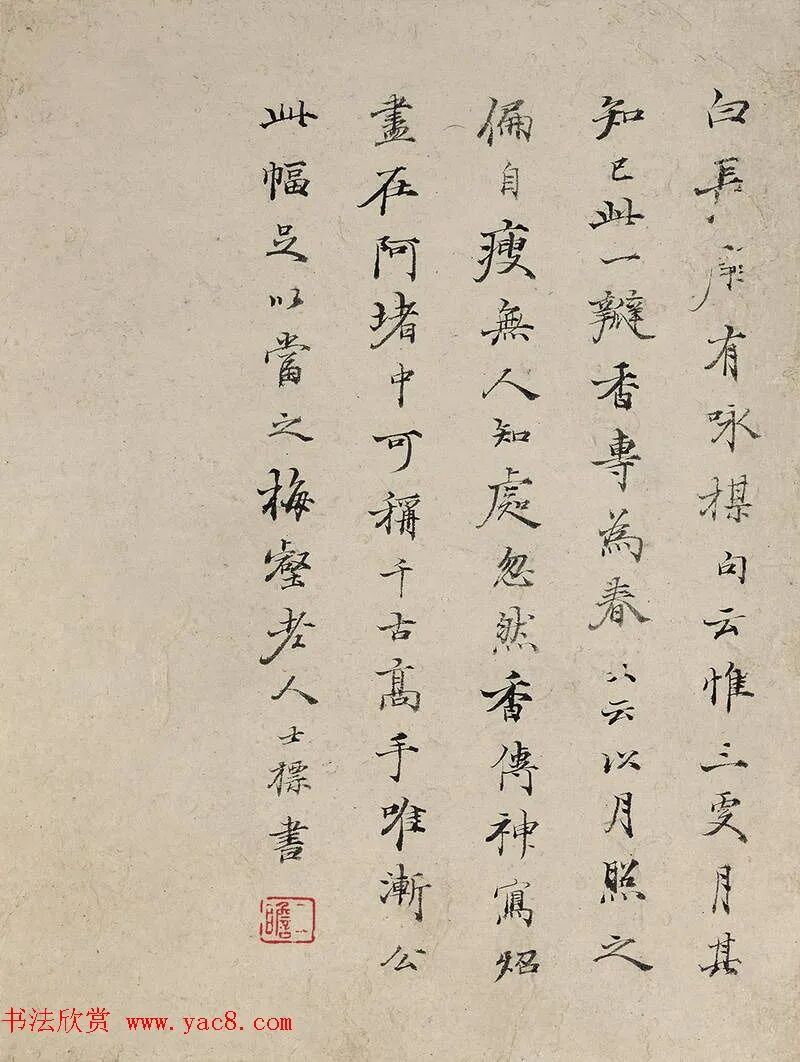 白長有咏楳句云惟三更月其
知己此一瓣香專為春云以月照之
偏自瘦無人知處忽然香傳神寫炤
盡在阿堵中可稱千古高手唯漸公
此幅足以當之梅壑老人士標書
二瞻
书法欣赏 www.yac8.com